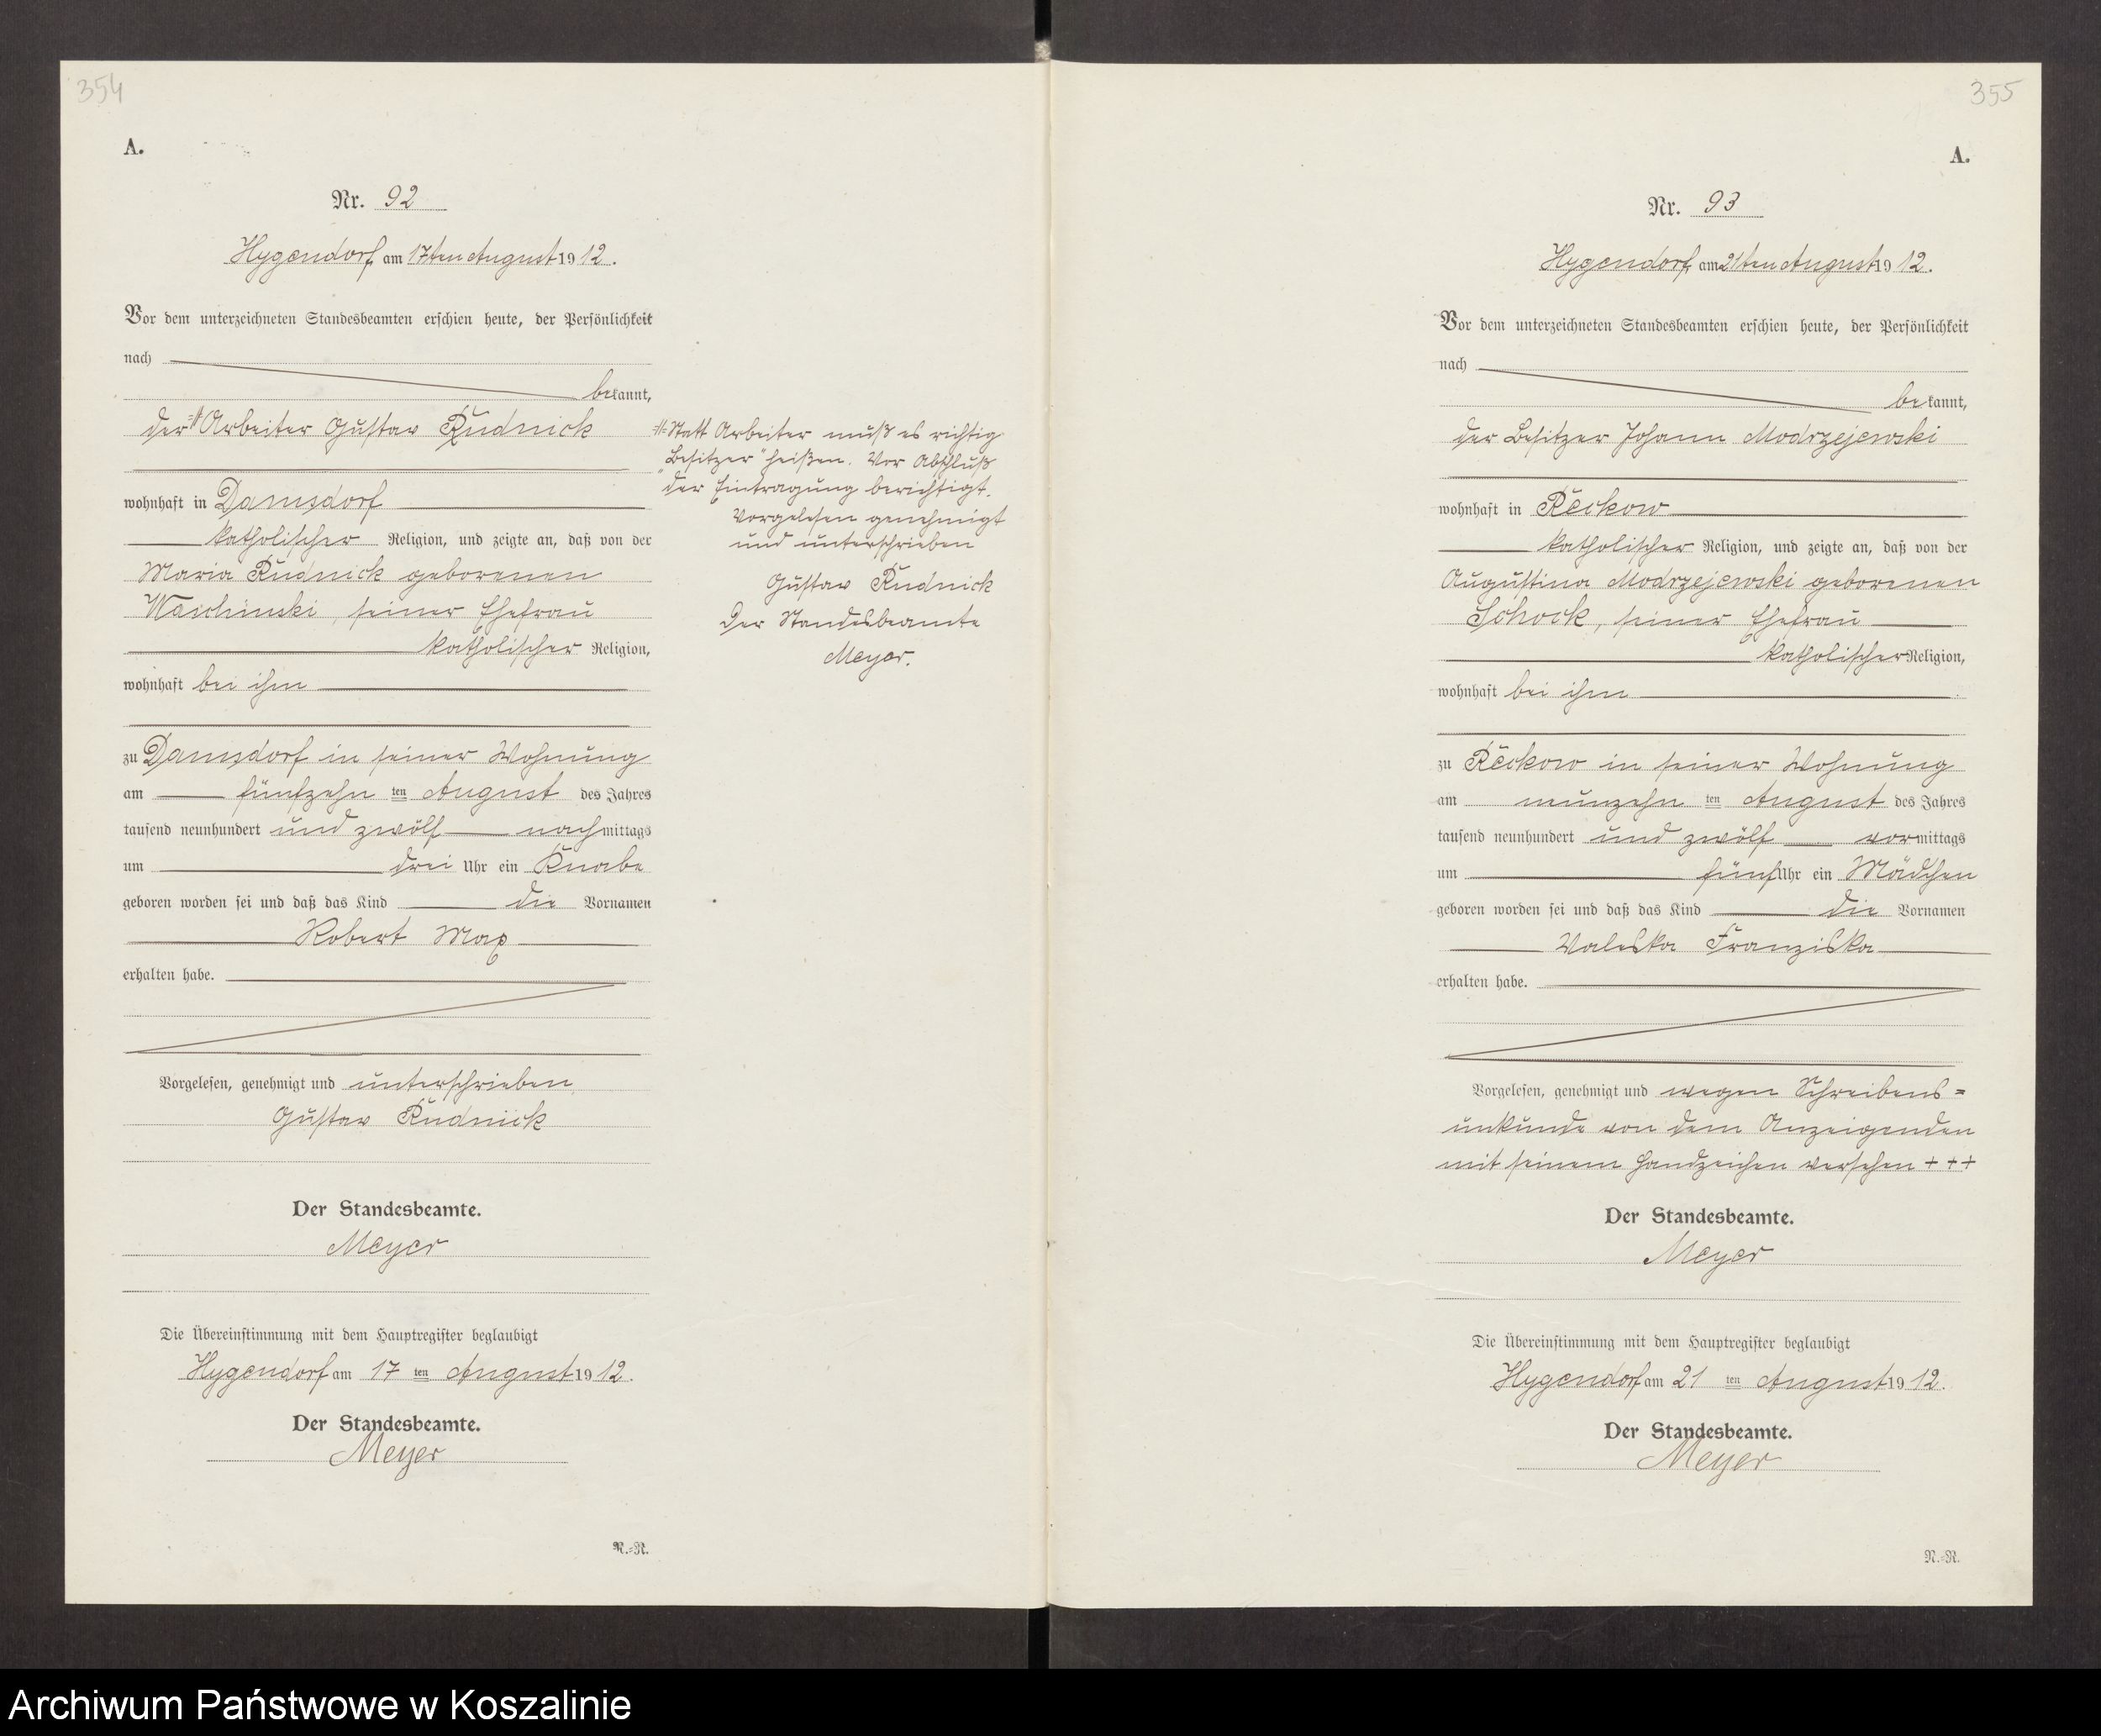 354
A.
Nr. 92
Hygendorf am 17ten August 1912.
Vor dem unterzeichneten Standesbeamten erschien heute, der Persönlichkeit
nach
bekannt,
der Arbeiter Gustav Rudnick
wohnhaft in Damsdorf
katholischer Religion, und zeigte an, daß von der
Maria Rudnick geborenen
Waschinski, seiner Ehefrau
katholischer Religion,
wohnhaft bei ihm
zu Damsdorf in seiner Wohnung
am fünfzehn ten August des Jahres
tausend neunhundert und zwölf nachmittags
um drei Uhr ein Knabe
geboren worden sei und daß das Kind die Vornamen
Robert Max
erhalten habe.
Vorgelesen, genehmigt und unterschrieben
Gustav Rudnick
Der Standesbeamte.
Meyer
Die Übereinstimmung mit dem Hauptregister beglaubigt
Hygendorf am 17 ten August 1912.
Der Standesbeamte.
Meyer
N.=R.
Statt Arbeiter muß es richtig
„Besitzer" heißen. Vor Abschluß
der Eintragung berichtigt.
Vorgelesen genehmigt
und unterschrieben
Gustav Rudnick
Der Standesbeamte
Meyer.
355
A.
Nr. 93
Hygendorf am 21ten August 1912.
Vor dem unterzeichneten Standesbeamten erschien heute, der Persönlichkeit
nach
bekannt,
der Besitzer Johann Modrzejewski
wohnhaft in Reckow
katholischer Religion, und zeigte an, daß von der
Augustina Modrzejewski geborenen
Schock, seiner Ehefrau
katholischer Religion,
wohnhaft bei ihm
zu Reckow in seiner Wohnung
am neunzehn ten August des Jahres
tausend neunhundert und zwölf vormittags
um fünf Uhr ein Mädchen
geboren worden sei und daß das Kind die Vornamen
Valeska Franziska
erhalten habe.
Vorgelesen, genehmigt und wegen Schreibens=
unkunde von dem Anzeigenden
mit seinem Handzeichen versehen + + +
Der Standesbeamte.
Meyer
Die Übereinstimmung mit dem Hauptregister beglaubigt
Hygendorf am 21 ten August 1912.
Der Standesbeamte.
Meyer
N.=R.
Archiwum Państwowe w Koszalinie